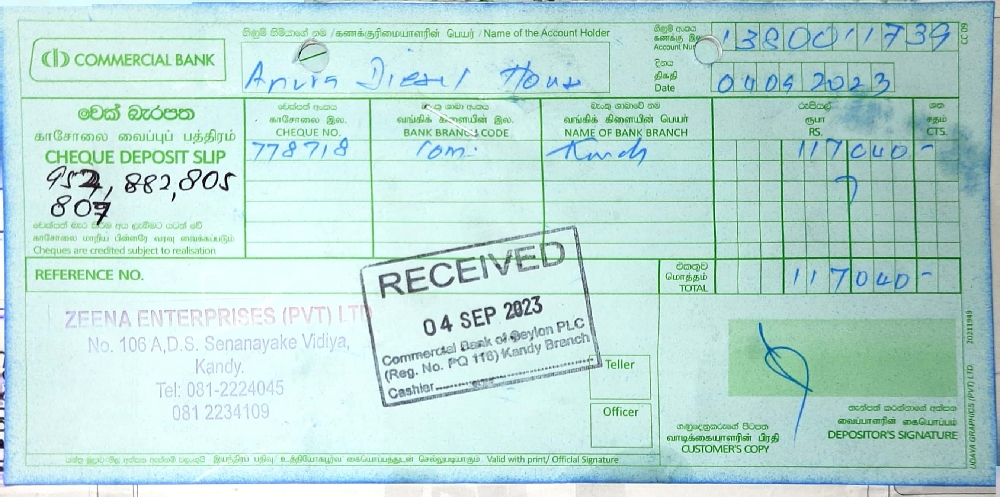 COMMERCIAL BANK
ගිණුම් හිමියාගේ නම / கணக்குரிமையாளரின் பெயர் / Name of the Account Holder
Diesel
ගිණුම් අංකය
கணக்கு இல
Account
1380011739
CC 09
දිනය
திகதி
Date
04 09 2023
චෙක් බැරපත
காசோலை வைப்புப் பத்திரம்
CHEQUE DEPOSIT SLIP
882,805
807
චෙක්පත් අංකය
காசோலை இல.
CHEQUE NO.
බැංකු ශාඛා අංකය
வங்கிக் கிளையின் இல.
BANK BRANCH CODE
බැංකු ශාඛාවේ නම
வங்கிக் கிளையின் பெயர்
NAME OF BANK BRANCH
රුපියල්
ரூபா
RS.
ශත
சதம்
CTS.
778718
Com.
Kandy
117040 -
காசோலை மாறிய பின்னரே வரவு வைக்கப்படும்
Cheques are credited subject to realisation
REFERENCE NO.
එකතුව
மொத்தம்
TOTAL
117040 -
ZEENA ENTERPRISES (PVT) LTD
No. 106 A,D.S. Senanayake Vidiya,
Kandy.
Tel: 081-2224045
081 2234109
RECEIVED
04 SEP 2023
Commercial Bank of Ceylon PLC
(Reg. No. PQ 116) Kandy Branch
Cashier
Teller
Officer
ගනුදෙනුකරුගේ පිටපත
வாடிக்கையாளரின் பிரதி
CUSTOMER'S COPY
තැන්පත් කරන්නාගේ අත්සන
வைப்பாளரின் கையொப்பம்
DEPOSITOR'S SIGNATURE
Valid with print/ Official Signature
UDAYA GRAPHICS (PVT) LTD.
20211949